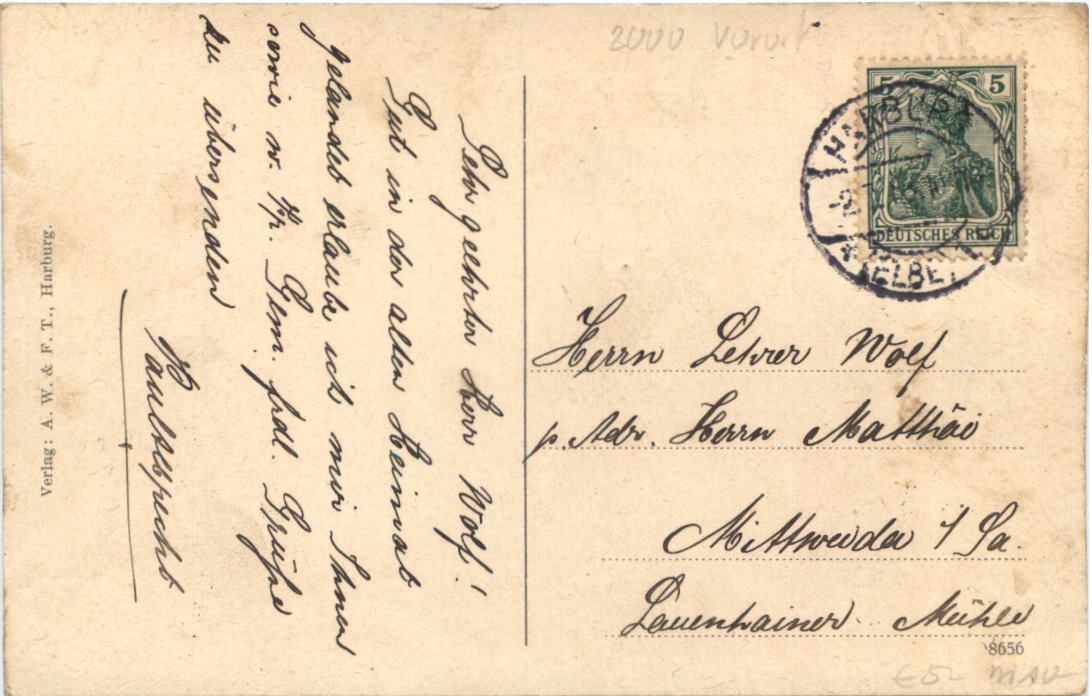 2000 Vorort
Sehr geehrter Herr Wolf!
Gut in der alten Heimat
gelandet erlaube ich mir Ihnen
sowie w. Fr. Gem. frdl. Grüße
zu übersenden
Verlag: A. W. & F. T., Harburg.
5 5
HARBURG
(ELBE)
DEUTSCHES REICH
Herrn Lehrer Wolf
p. Adr. Herrn Matthäi
Mittweida i/Sa.
Lauenhainer Mühle
8656